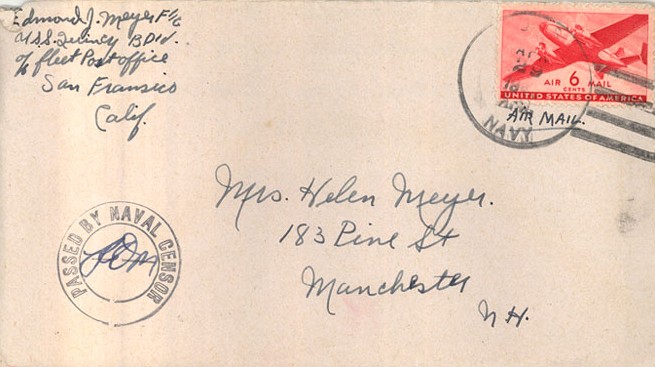 Edmond J. Meyer F1/c
U.S.S. Quincy B Div.
c/o Fleet Post office
San Fransico
Calif.
AIR 6 MAIL
CENTS
UNITED STATES OF AMERICA
AIR MAIL.
NAVY
PASSED BY NAVAL CENSOR
Mrs. Helen Meyer.
183 Pine St
Manchester
N.H.